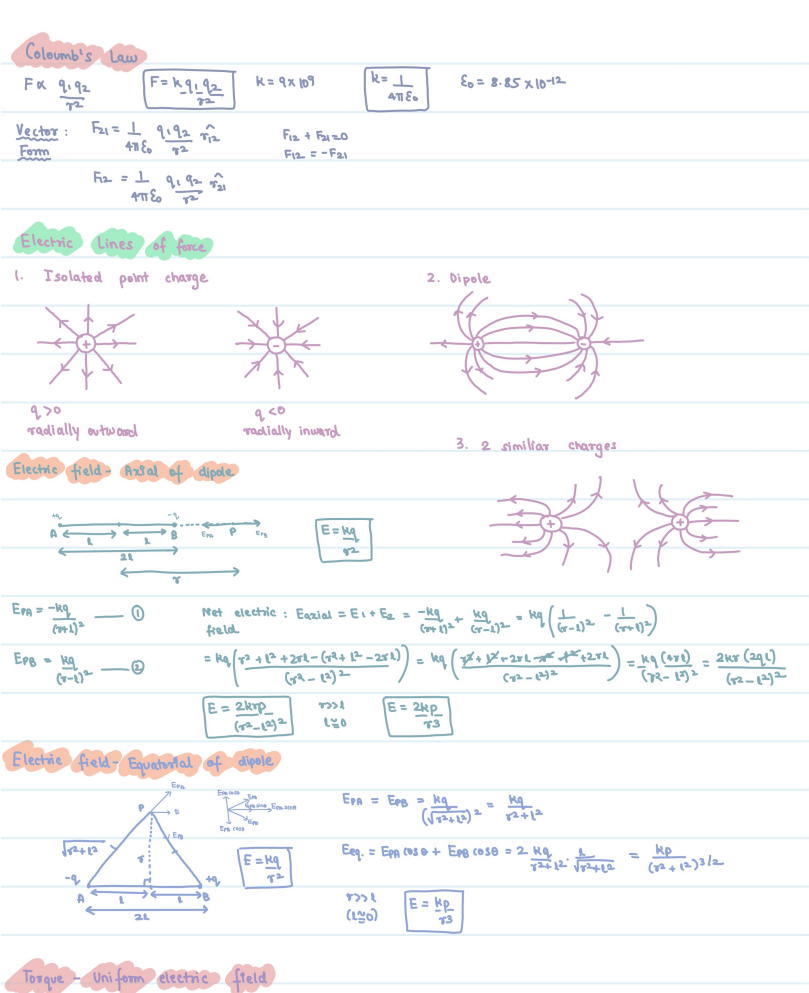 Coloumb's Law
F ∝ q₁q₂/r²   F = k q₁q₂/r²   k = 9 x 10⁹   k = 1/4πε₀   ε₀ = 8.85 x 10⁻¹²
Vector Form : F₂₁ = 1/4πε₀ q₁q₂/r² r̂₁₂   F₁₂ + F₂₁ = 0
F₁₂ = -F₂₁
F₁₂ = 1/4πε₀ q₁q₂/r² r̂₂₁
Electric Lines of force
1. Isolated point charge
+
-
q > 0
radially outward
q < 0
radially inward
2. Dipole
+ -
3. 2 similiar charges
+ +
Electric field - Axial of dipole
+q -q
A l l B E_PA P E_PB
2l
r
E = kq/r²
E_PA = -kq/(r+l)² —— ①
Net electric field : E_axial = E₁ + E₂ = -kq/(r+l)² + kq/(r-l)² = kq(1/(r-l)² - 1/(r+l)²)
E_PB = kq/(r-l)² —— ②
= kq(r² + l² + 2rl - (r² + l² - 2rl)/(r² - l²)²) = kq(r² + l² + 2rl - r² - l² + 2rl/(r² - l²)²) = kq(4rl)/(r² - l²)² = 2kr(2ql)/(r² - l²)²
E = 2krp/(r² - l²)²   r>>l   l≅0   E = 2kp/r³
Electric field - Equatorial of dipole
E_PA
P E
E_PB
√r²+l² r
-q +q
A l l B
2l
E_PA cosθ E_PA
E_PA sinθ
E_PB
E_PB cosθ
E = kq/r²
E_PA = E_PB = kq/(√r²+l²)² = kq/r²+l²
E_eq. = E_PA cosθ + E_PB cosθ = 2 kq/r²+l² . l/√r²+l² = kp/(r²+l²)3/2
r>>l
(l≅0)   E = kp/r³
Torque - Uniform electric field